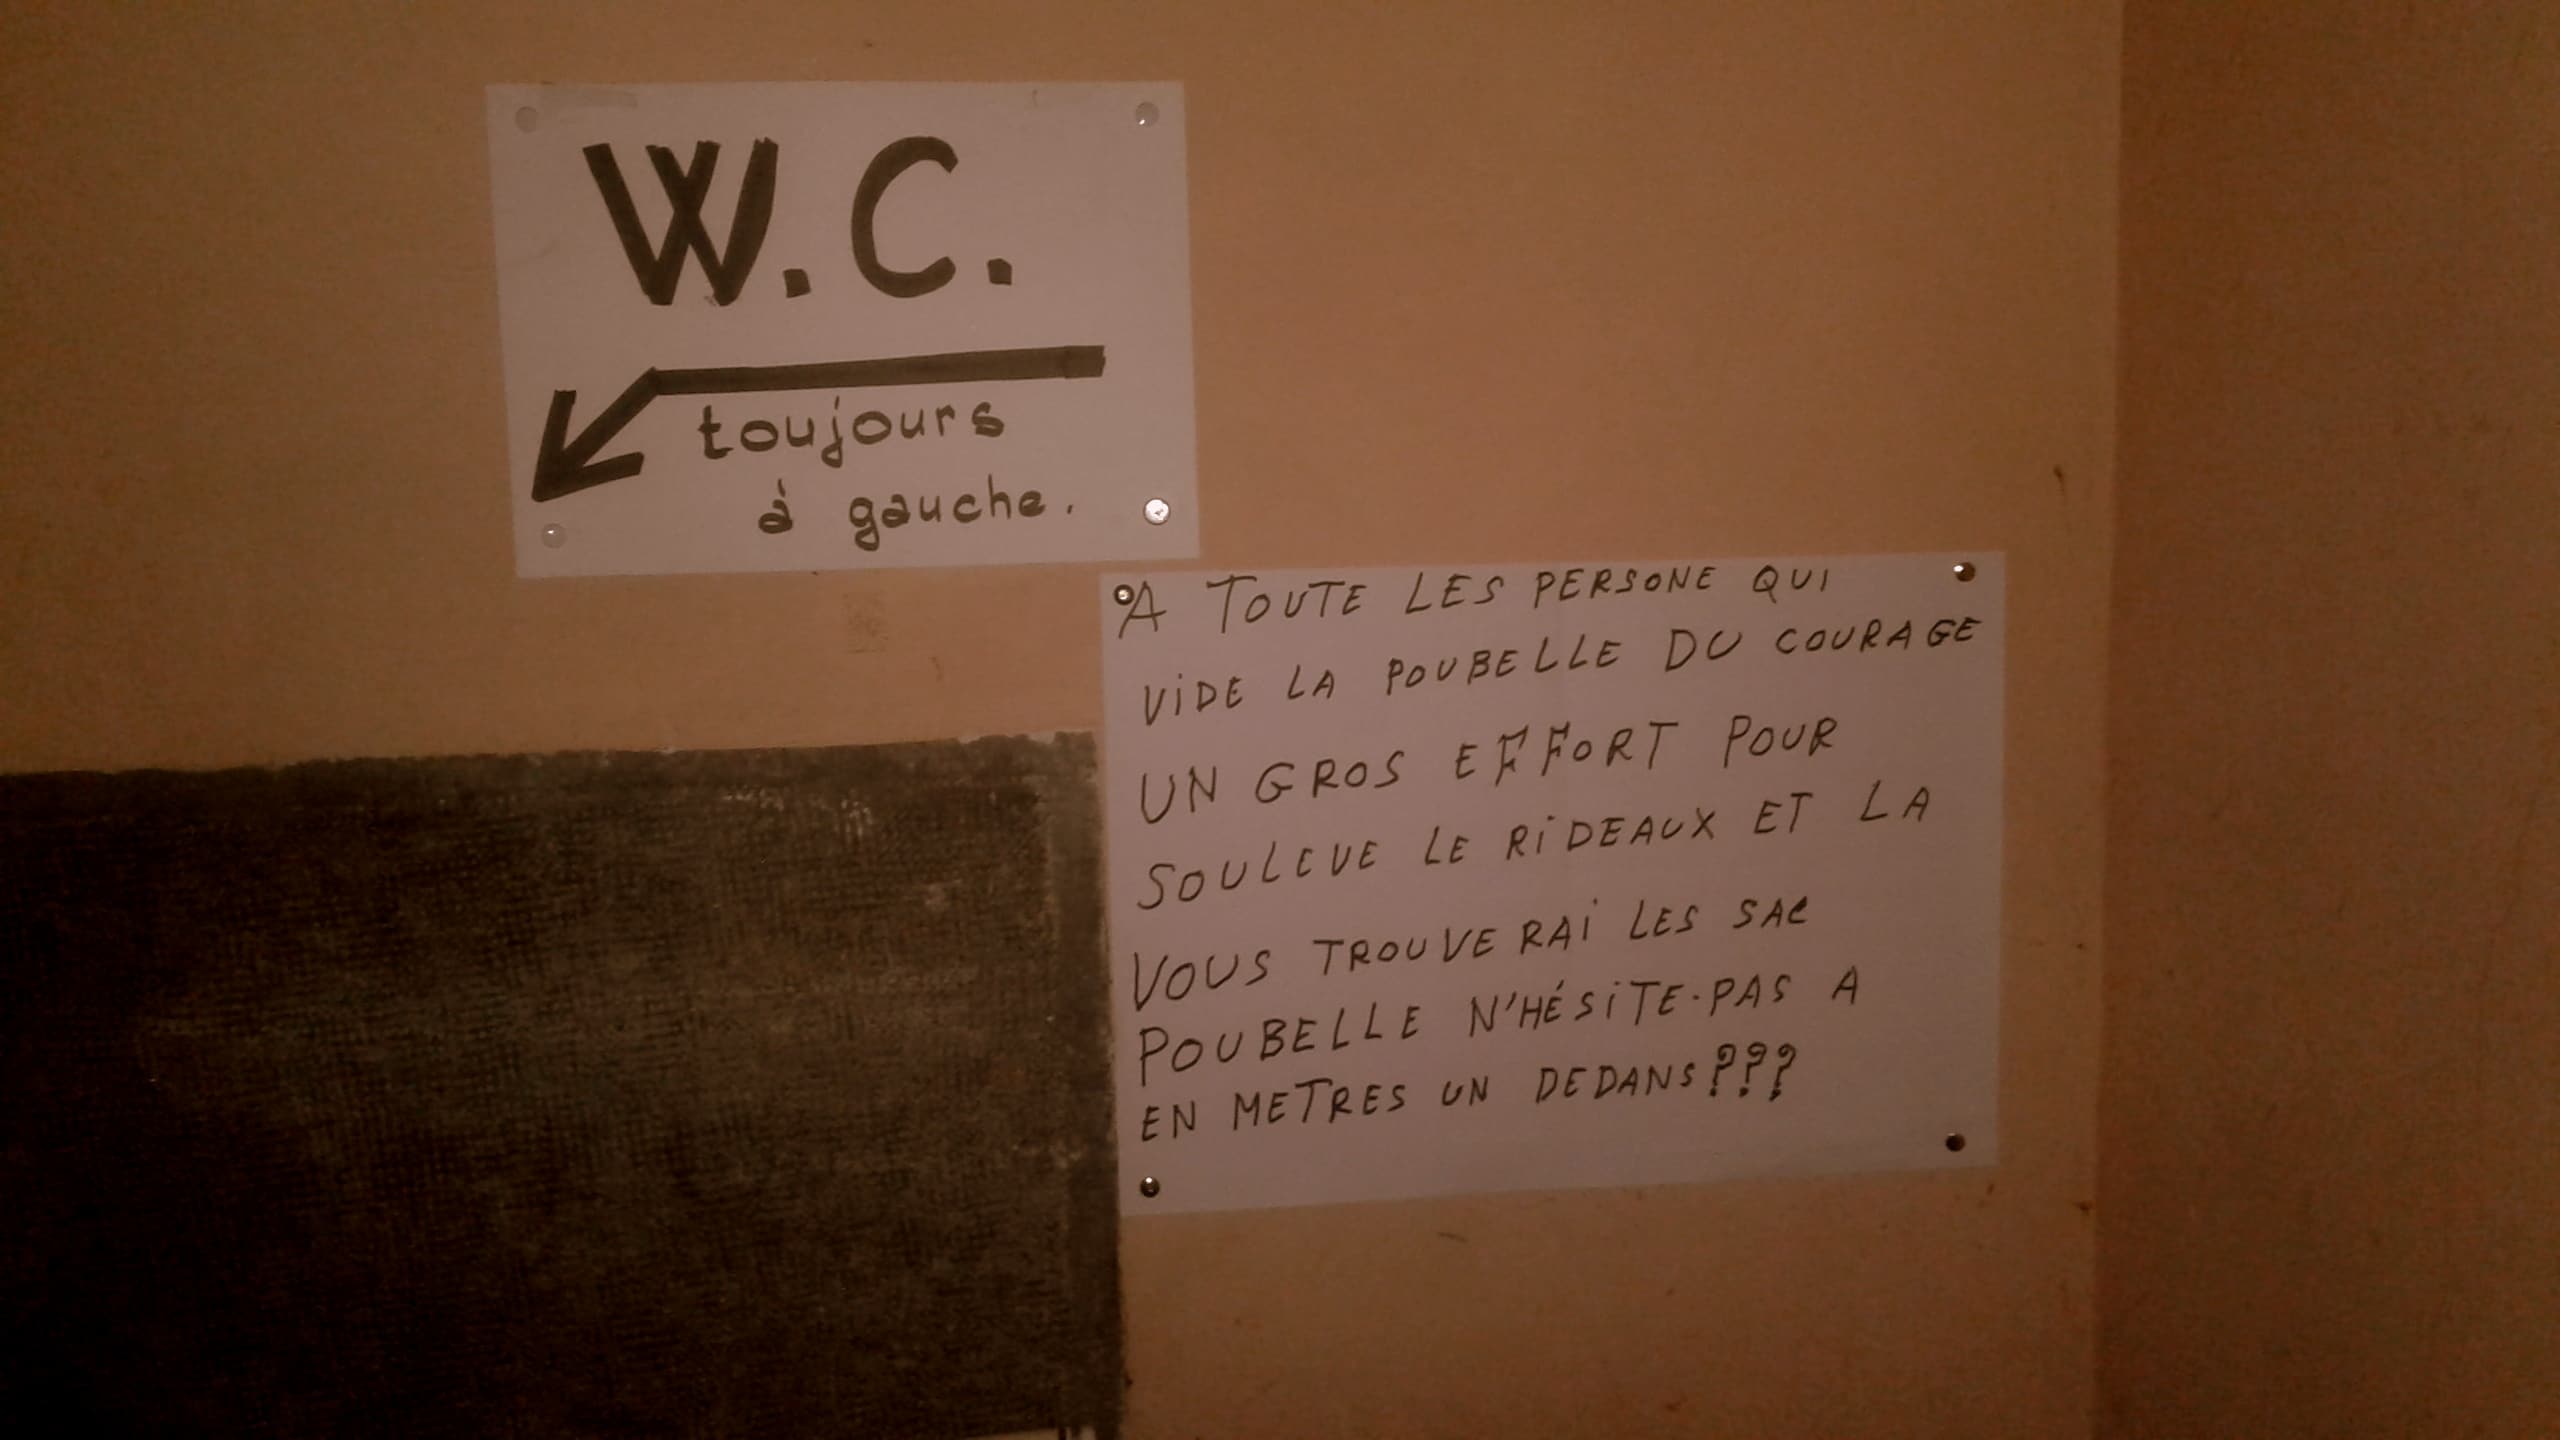 W.C.
toujours
à gauche.
A TOUTE LES PERSONE QUI
VIDE LA POUBELLE DU COURAGE
UN GROS EFFORT POUR
SOULEVE LE RIDEAUX ET LA
VOUS TROUVERAI LES SAC
POUBELLE N'HÉSITE-PAS A
EN METRES UN DEDANS???